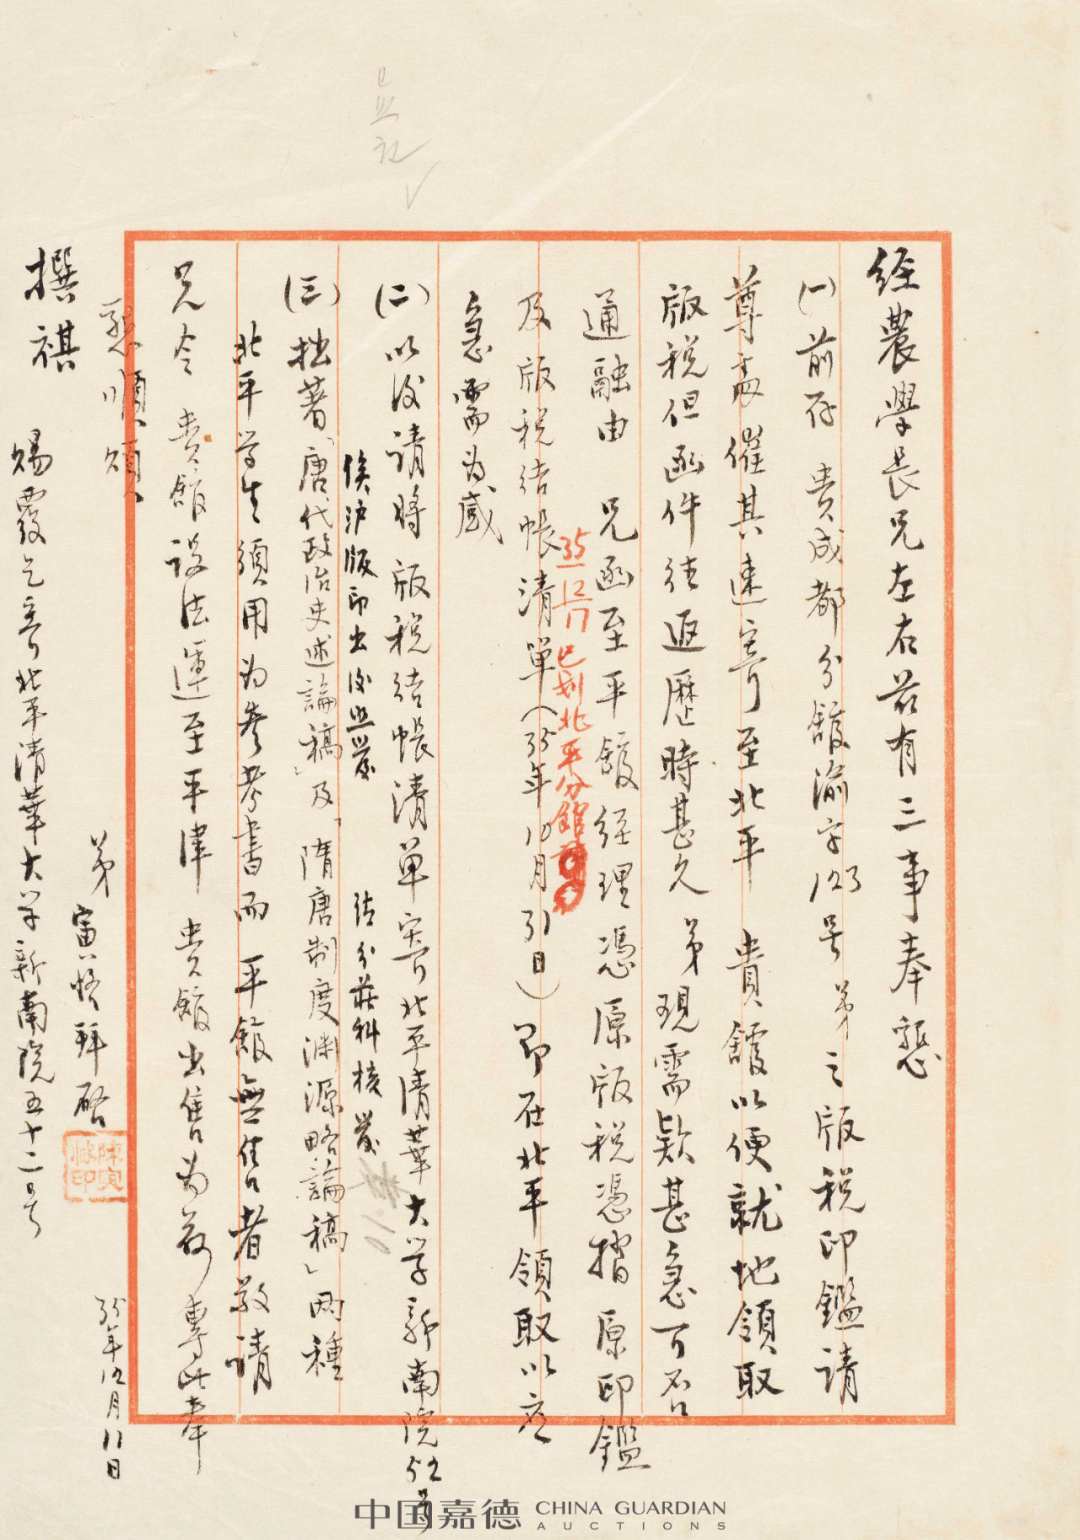 经農學长兄左右兹有三事奉懇
(一)前存 贵成都分馆渝字123号弟之版税印鑑请
尊處催其速寄至北平 貴館以便就地領取
版税但函件往返歷時甚久 弟現需款甚急可否
通融由 兄函至平館经理憑原版税憑摺原印鑑
35/12/17已划北平分館
及版税结帳清单(35年10月31日)即在北平領取以应
急需为感
(二)以后请將版税结帳清单寄北平清華大学新南院52号
俟沪版印出后照发 结分莊科核发
(三)拙著「唐代政治史述論稿」及「隋唐制度渊源略論稿」两種
北平学生須用为参考書而平館無售者敬请
兄令 贵館设法運至平津 贵館出售为荷專此奉
懇順頌
撰祺
弟 寅恪拜啓
陳寅恪印
35年12月11日
赐覆乞寄北平清華大学新南院五十二号
中国嘉德 CHINA GUARDIAN AUCTIONS